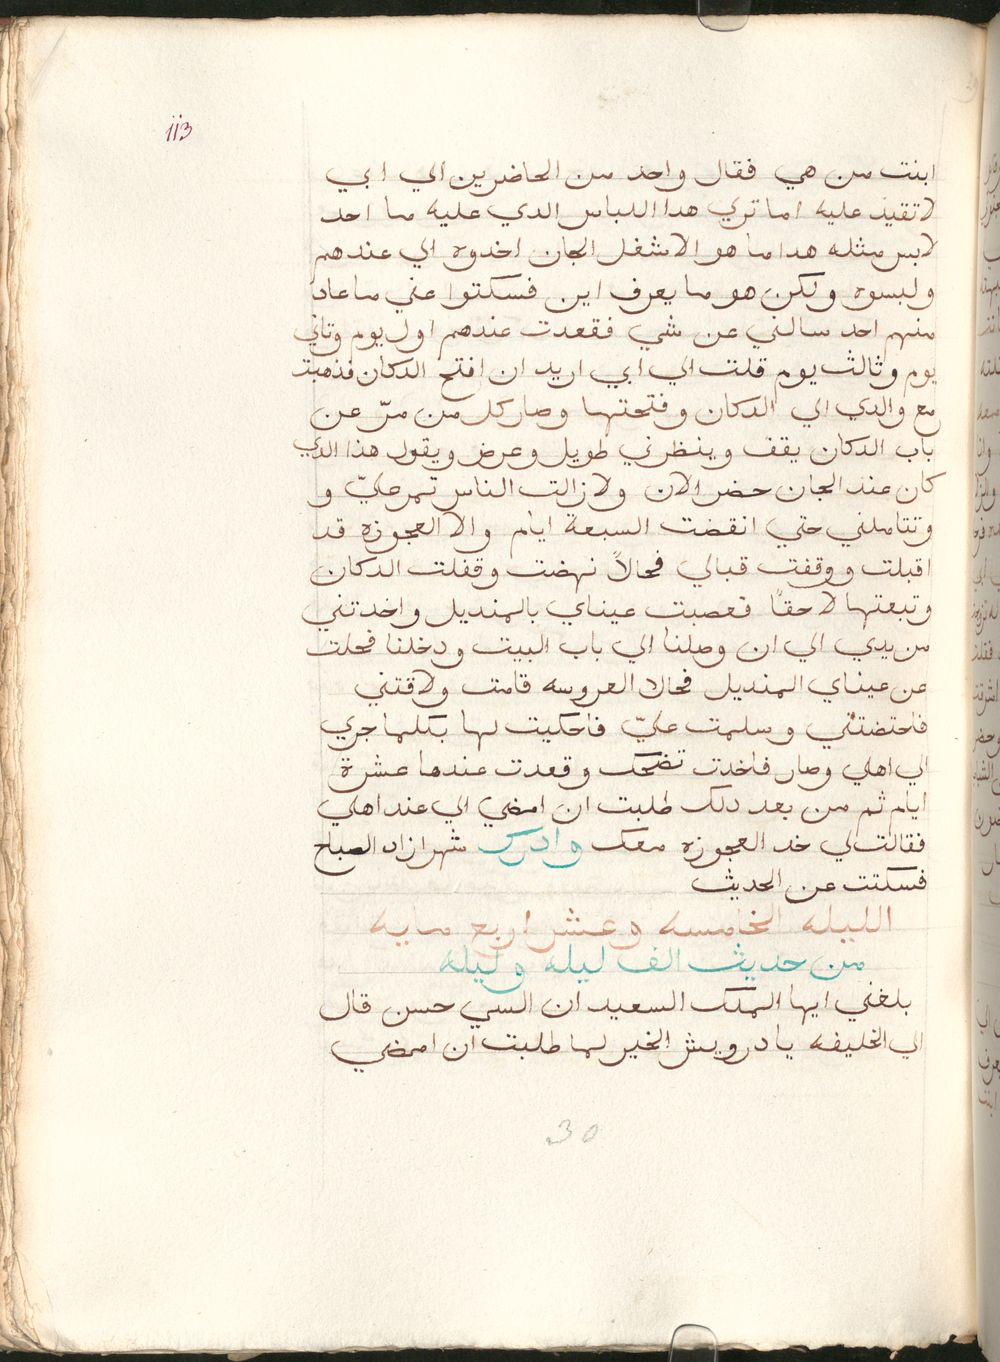 113
ابنت من هي فقال واحد من الحاضرين الي ابي
لا تقيد عليه اما تري هدا اللباس الدي عليه ما احد
لابس مثله هدا ما هو الا شغل الجان اخدوه الي عندهم
ولبسوه ولكن هو ما يعرف اين فسكتوا عني ما عاد
منهم احد سالني عن شي فقعدت عندهم اول يوم وتاني
يوم وثالث يوم قلت الي ابي اريد ان افتح الدكان فذهبت
مع والدي الي الدكان وفتحتها وصار كل من مرّ عن
باب الدكان يقف وينظرني طويل وعرض ويقول هذا الدي
كان عند الجان حضر الان ولا زالت الناس تمر عليّ و
وتتاملني حتي انقضت السبعة ايام والا العجوزه قد
اقبلت ووقفت قبالي فحالاً نهضت وقفلت الدكان
وتبعتها لاحقاً فعصبت عيناي بالمنديل واخدتني
من يدي الي ان وصلنا الي باب البيت ودخلنا فحلت
عن عيناي المنديل فحالا العروسه قامت ولاقتني
فاحتضنتني وسلمت عليّ فاحكيت لها بكلما جري
الي اهلي وصار فاخدت تضحك وقعدت عندها عشرة
ايام ثم من بعد دلك طلبت ان امضي الي عند اهلي
فقالت لي خد العجوزه معك وادرك شهرازاد الصباح
فسكتت عن الحديث
الليله الخامسه وعشر اربع مايه
من حديث الف ليله وليله
بلغني ايها الملك السعيد ان السي حسن قال
الي الخليفه يا درويش الخير لما طلبت ان امضي
30